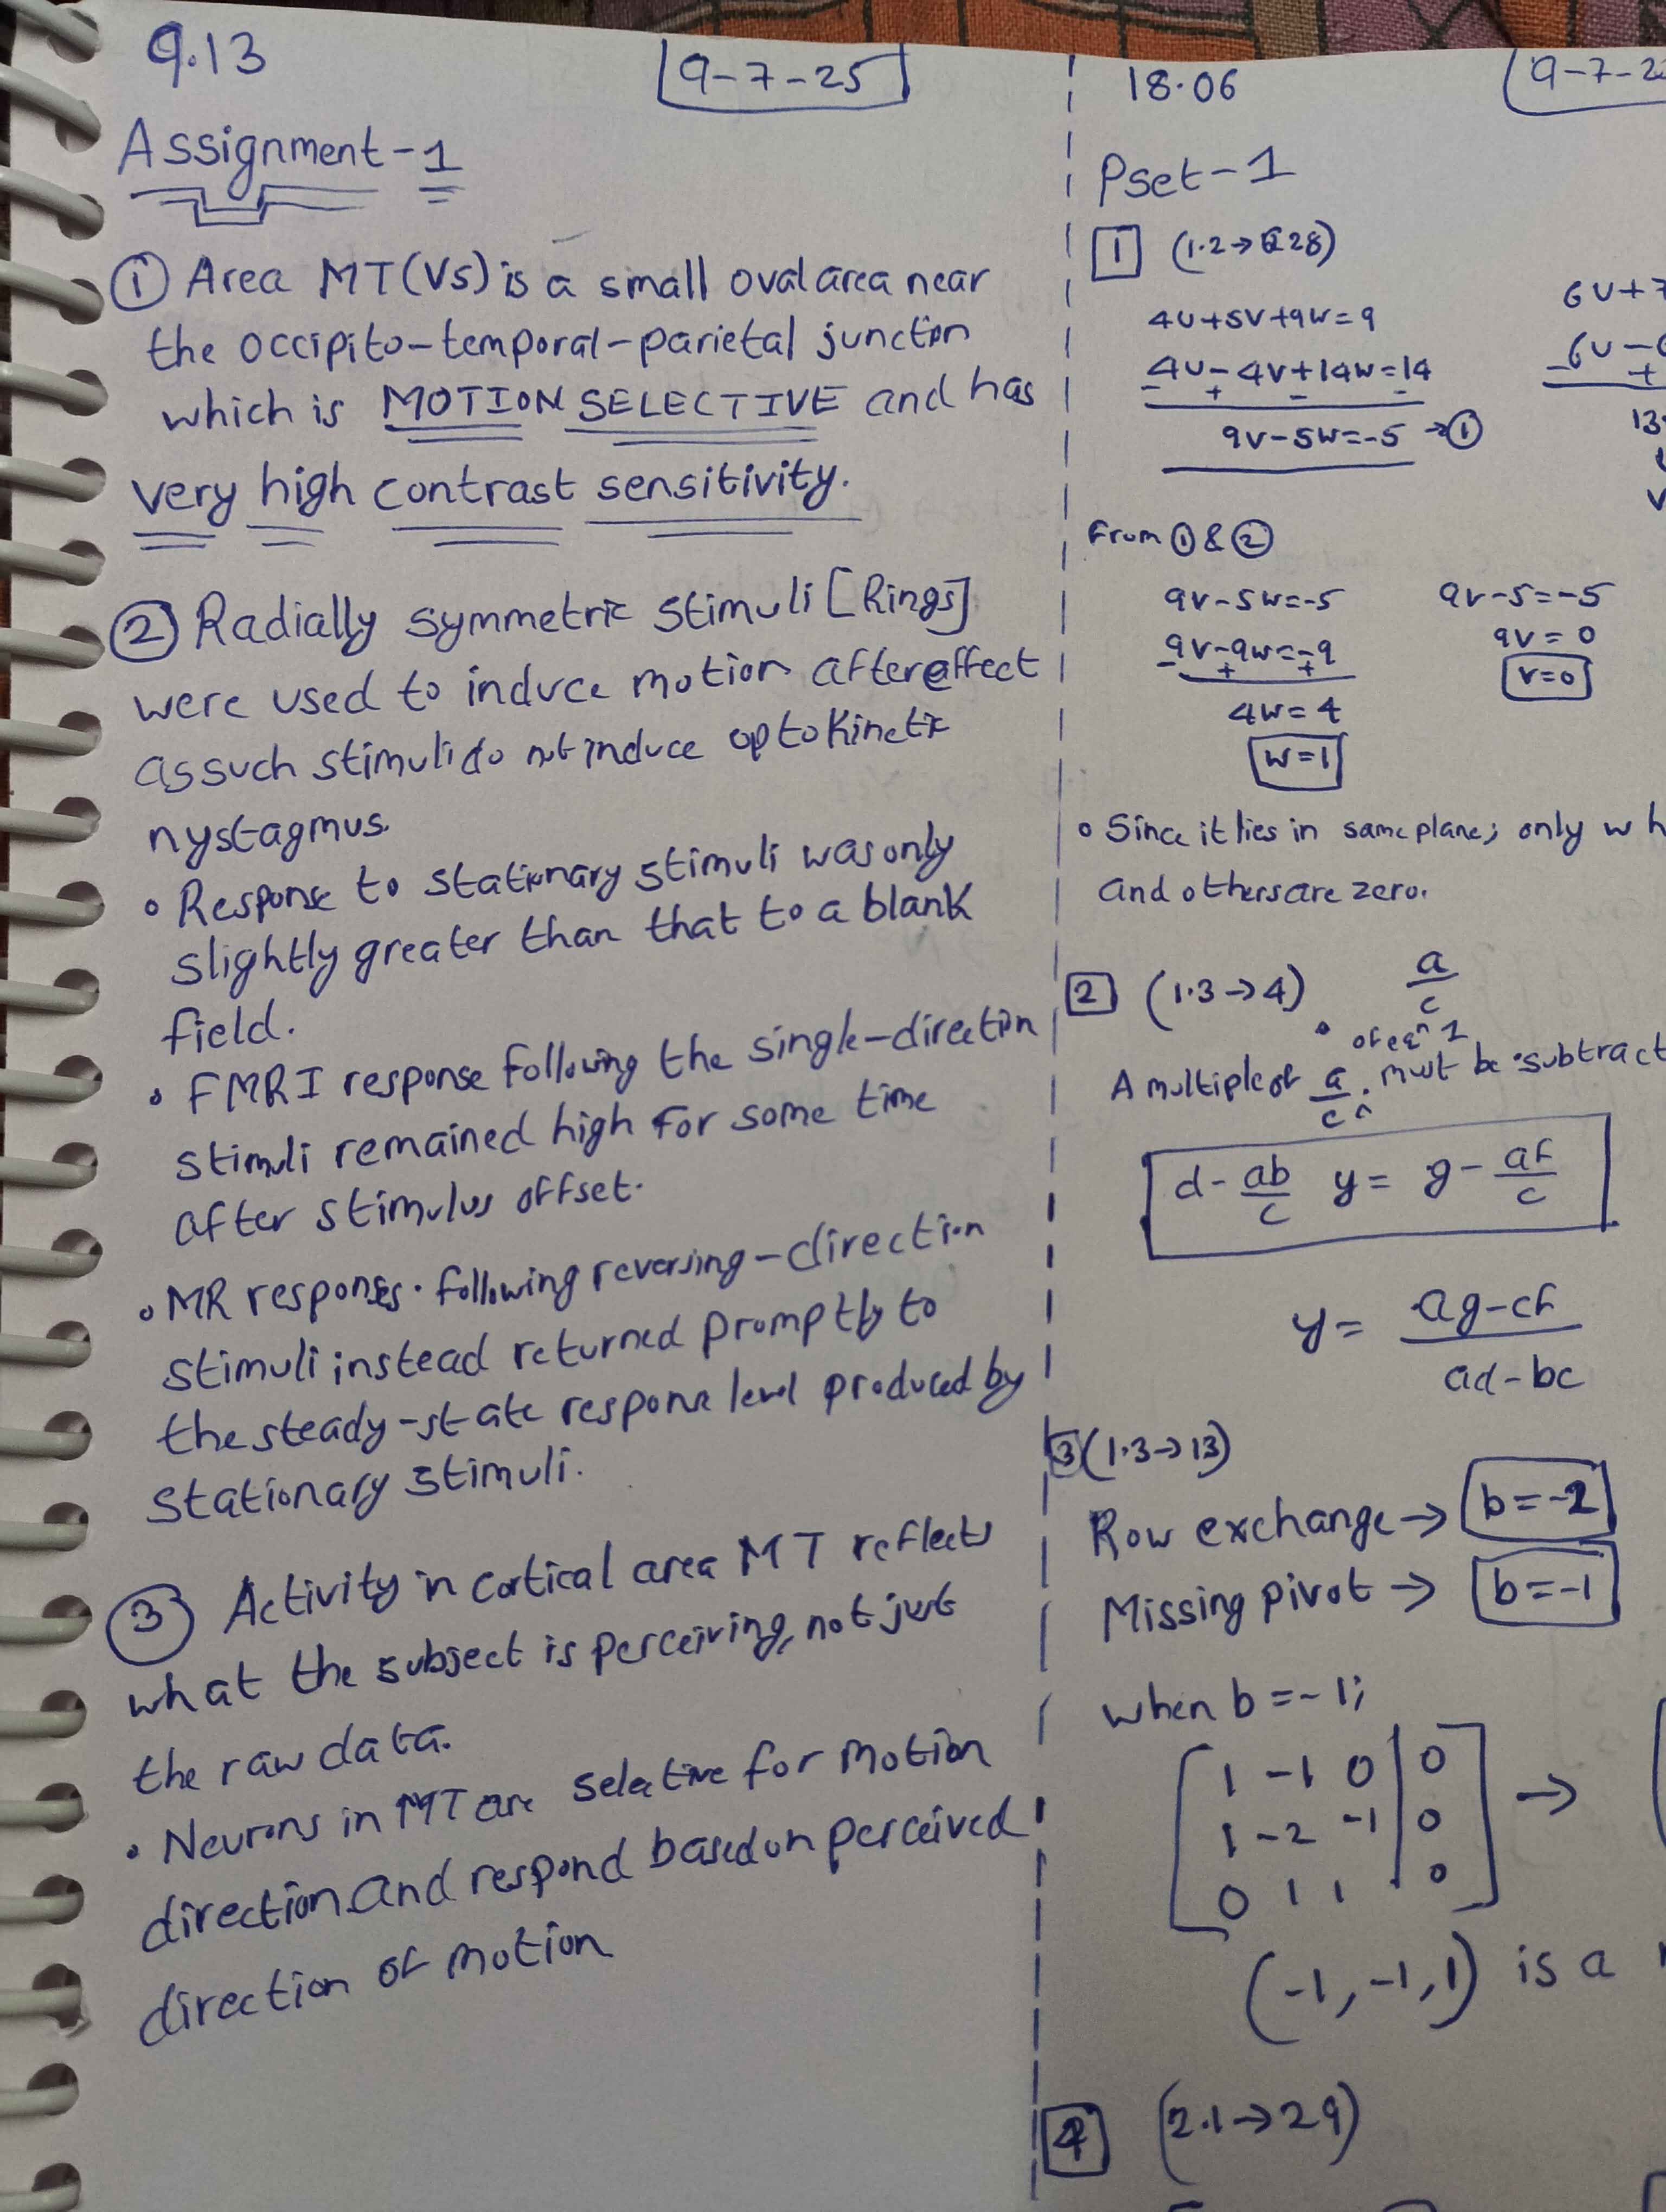 9.13
9-7-25
Assignment-1
① Area MT(V5) is a small oval area near
the occipito-temporal-parietal junction
which is MOTION SELECTIVE and has
very high contrast sensitivity.
② Radially symmetric stimuli [Rings]
were used to induce motion aftereffect
as such stimuli do not induce optokinetic
nystagmus.
• Response to stationary stimuli was only
slightly greater than that to a blank
field.
• FMRI response following the single-direction
stimuli remained high for some time
after stimulus offset.
• MR responses following reversing-direction
stimuli instead returned promptly to
the steady-state response level produced by
stationary stimuli.
③ Activity in cortical area MT reflects
what the subject is perceiving, not just
the raw data.
• Neurons in MT are selective for motion
direction and respond based on perceived
direction of motion
18.06
9-7-2
Pset-1
1 (1.2→28)
4u+5v+9w=9
4u-4v+14w=14
- + - -
9v-5w=-5 →①
6u+7
6u-
- +
13
v
From ① & ②
9v-5w=-5
9v-9w=-9
- + +
4w=4
w=1
9v-5=-5
9v=0
v=0
• Since it lies in same plane; only w h
and others are zero.
2 (1.3→4) a/c
• of eqn 1
A multiple of a/c must be subtract
d-ab/c y= g-af/c
y= ag-cf/ad-bc
3 (1.3→13)
Row exchange→ b=-2
Missing pivot→ b=-1
when b=-1;
1 -1 0 | 0
1 -2 -1 | 0 →
0 1 1 | 0
(-1,-1,1) is a
4 (2.1→29)